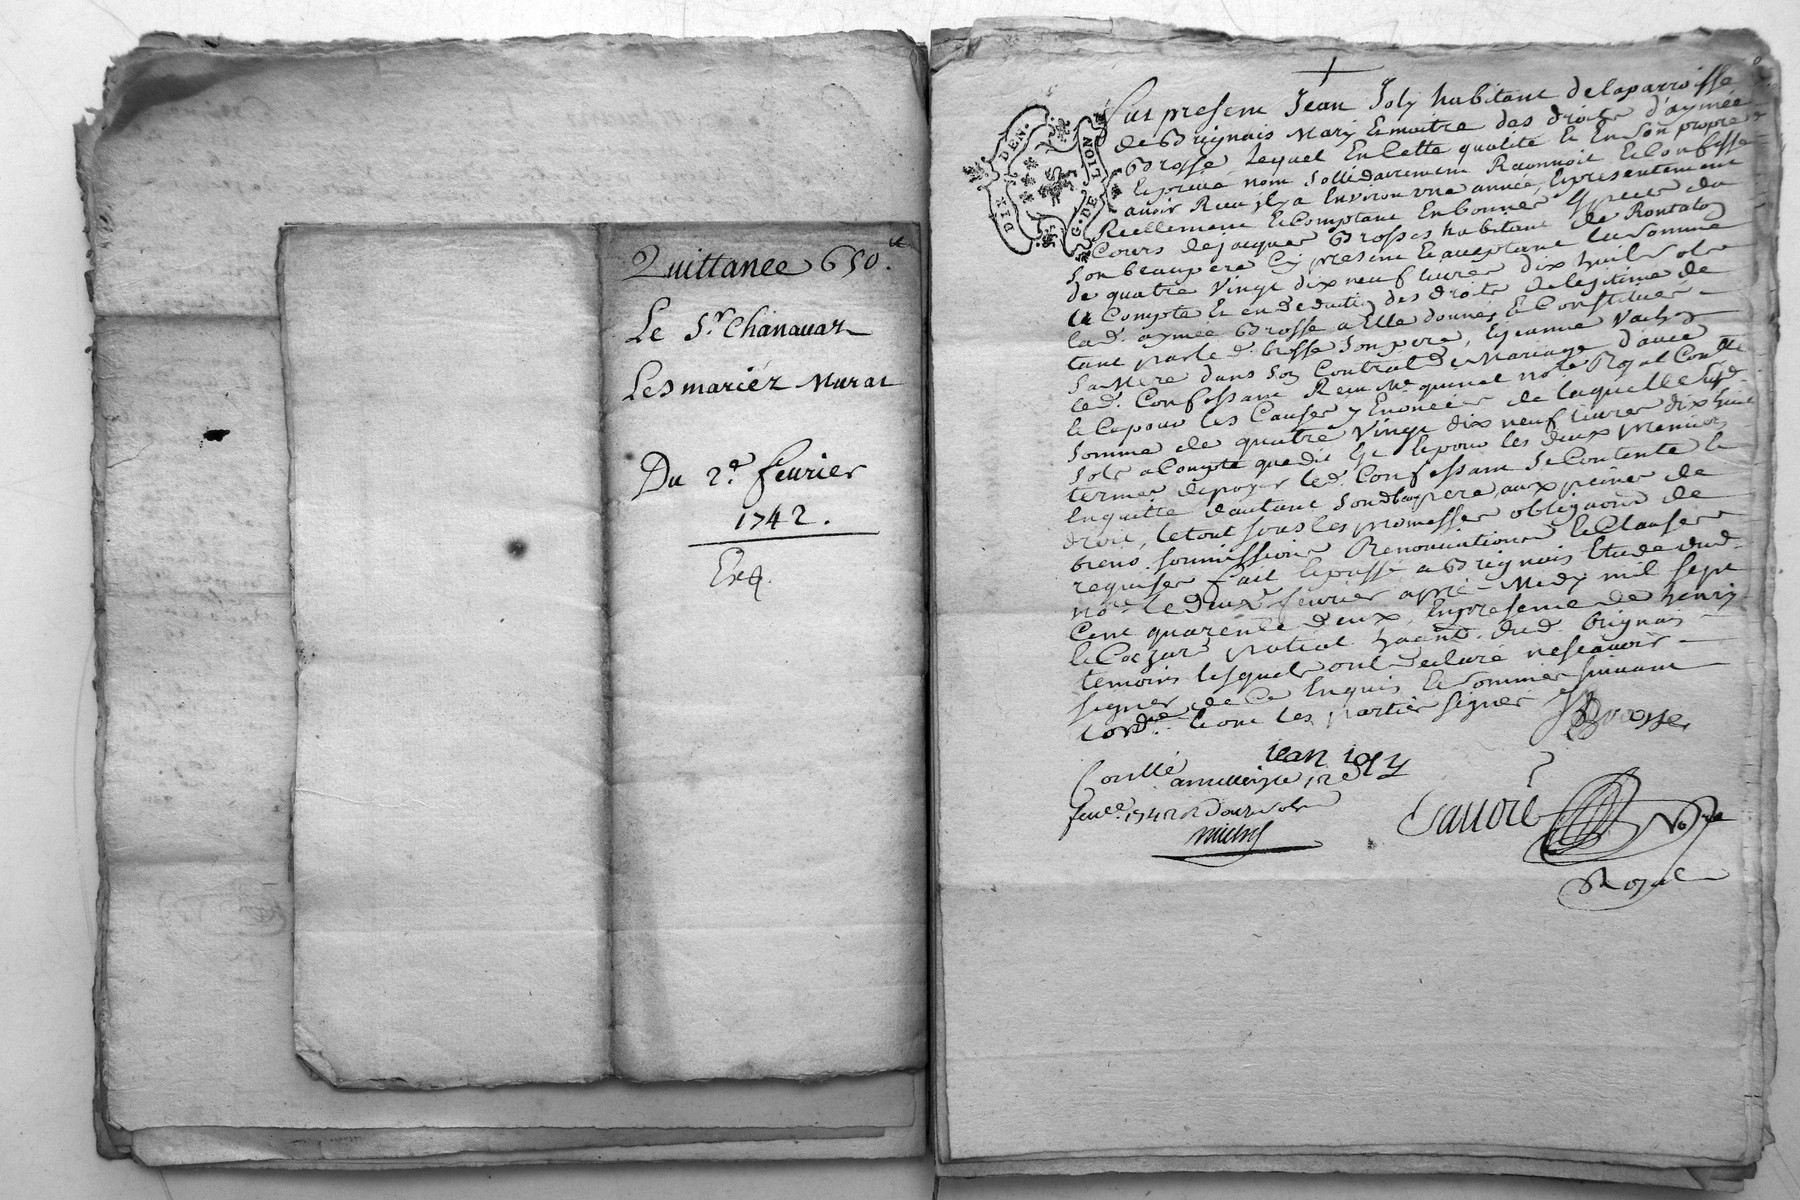 Quittance 650.ᵗᵗ
Le Sʳ. Chanauaz
Les mariéz Murat
Du 2ᵉ. feurier
1742.
Exᵱ.
G. DE LION
DIX DEN.
fut present Jean Joly habitant de la parroisse
de Brignais Mary & maitre des droits d'aymée
Brosse lequel En Cette qualité Et En son propre
& priué nom sollidairement Reconnoit & Confesse
auoir Receu il y a Enuiron vne année, & presentement
Reellement & Comptant En bonnes Especes du
Cours de Jacques Brosses habitant de Rontalon
son beaupere Cy present & acceptant la somme
de quatre vingt dix neuf liures dix huit sols
a Compte Et en deduction des droits de legitime de
lad. aymée Brosse a Elle donnés & Constitués
tant par led. brosse son pere, & jeanne Vachon
sa Mere dans son Contrat de Mariage d'auec
led. Confessant Receu Mᵉ quinat noʳᵉ Royal
& Ce pour les Causes y Enoncées de laquelle susd.
somme de quatre vingt dix neuf liures dix huit
sols a Compte que dit Est & pour les deux premiers
termes de payes led. Confessant se Contente &
En quitte d'autant sond. beaupere, aux peines de
droit, le tout sous les promesses obligaons de
biens soumissions Renonciations & Clauses
requises fait & passé a Brignais Etude dud.
noʳᵉ le deux feurier apré-Midy mil sept
Cent quarente deux, En presence de henry
temoins lesquels ont declaré ne scauoir
signer de Ce Enquis & sommés suiuant
lordᶜᵉ. & ont les parties signés
JBrosse
jean joly
Conllé
feuᵉʳ. 1742 R. Douze sols
Royal